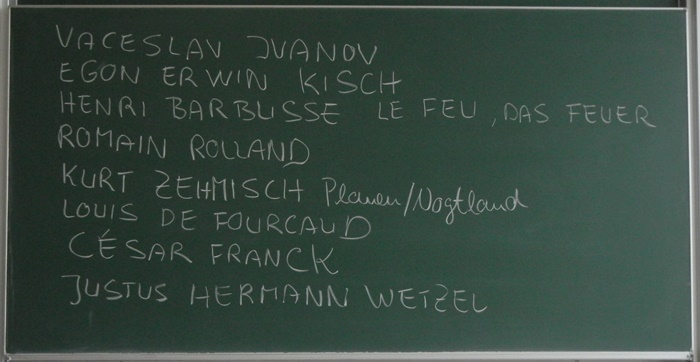 VACESLAV IVANOV
EGON ERWIN KISCH
HENRI BARBUSSE LE FEU, DAS FEUER
ROMAIN ROLLAND
KURT ZEHMISCH Plauen/Vogtland
LOUIS DE FOURCAUD
CÉSAR FRANCK
JUSTUS HERMANN WETZEL